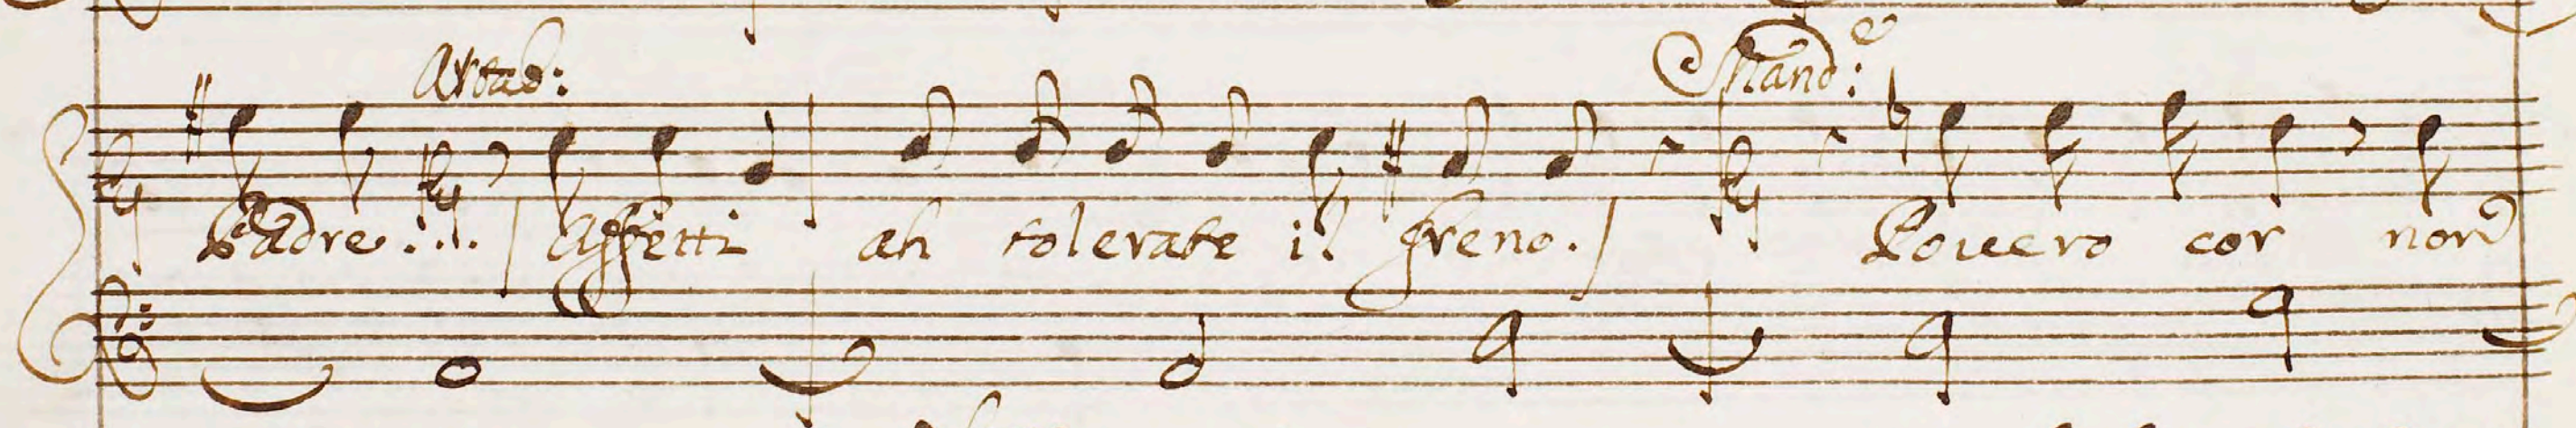 Artab: Mand:e
Padre .... / Affetti ah tolerate il freno. / Pouero cor non